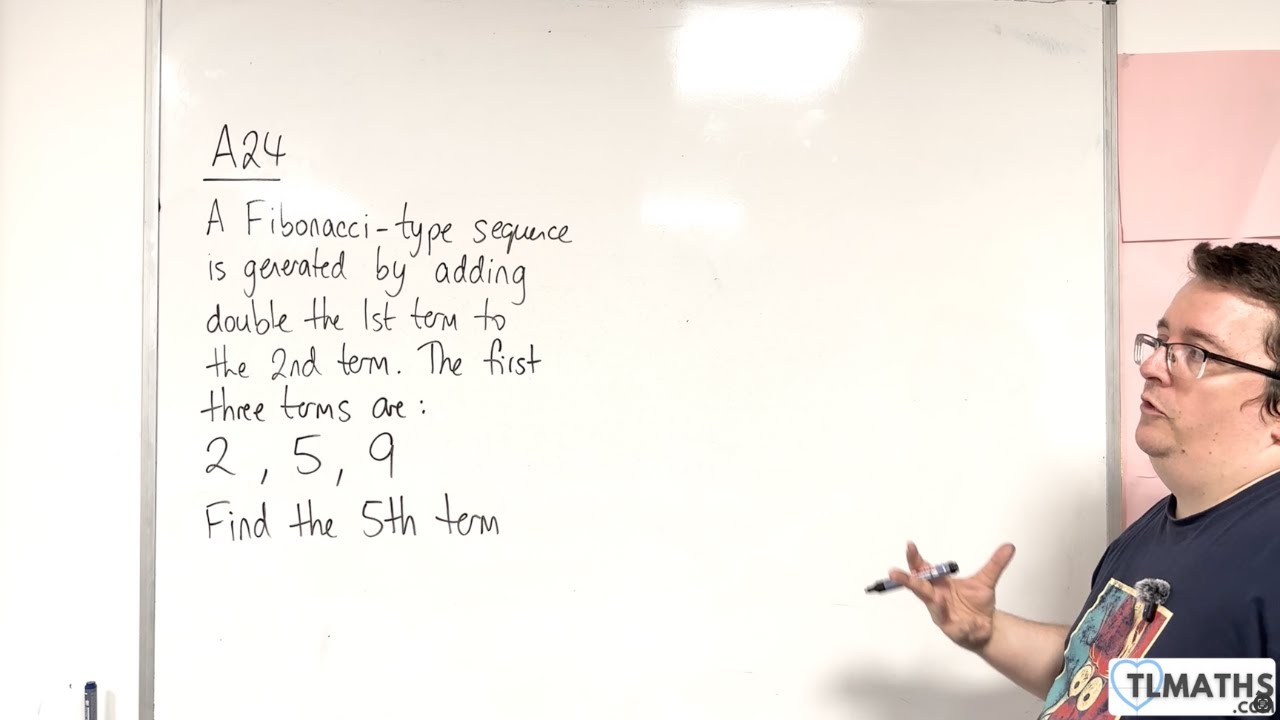 A24
A Fibonacci-type sequence
is generated by adding
double the 1st term to
the 2nd term. The first
three terms are:
2, 5, 9
Find the 5th term
TLMATHS
.com